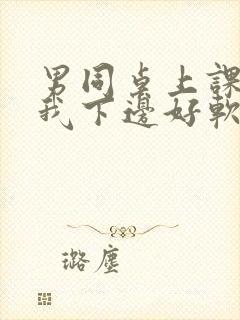 男同桌上課
我下邊好軟
璐塵